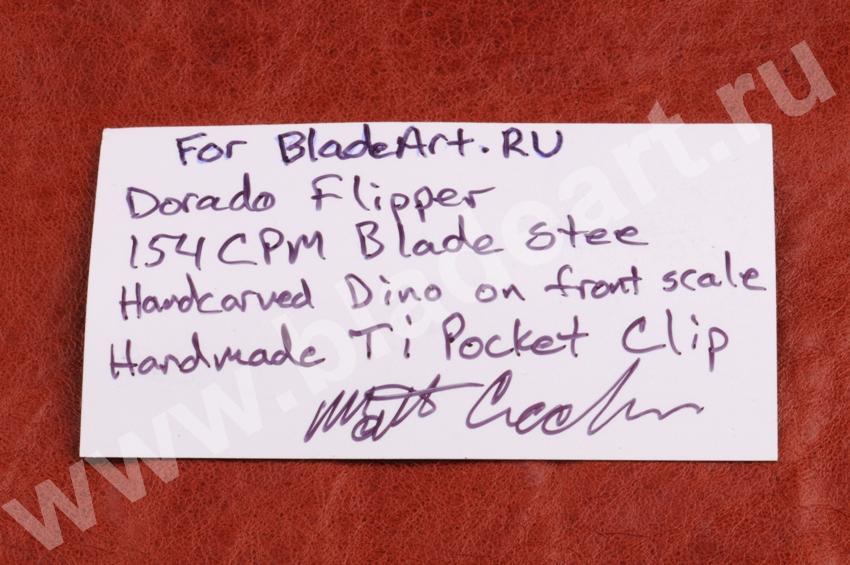 For BladeArt.RU
Dorado Flipper
154 CPM Blade stee
Handcarved Dino on front scale
Handmade Ti Pocket Clip
Matt
www.bladeart.ru